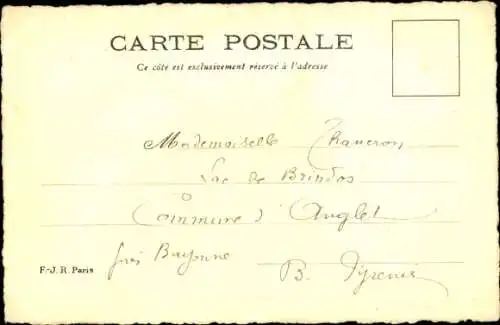 CARTE POSTALE
Ce côté est exclusivement réservé à l'adresse
Mademoiselle
Lac de Brindos
Commune d'Anglet
près Bayonne
B. Pyrenées
F.-J. R. Paris